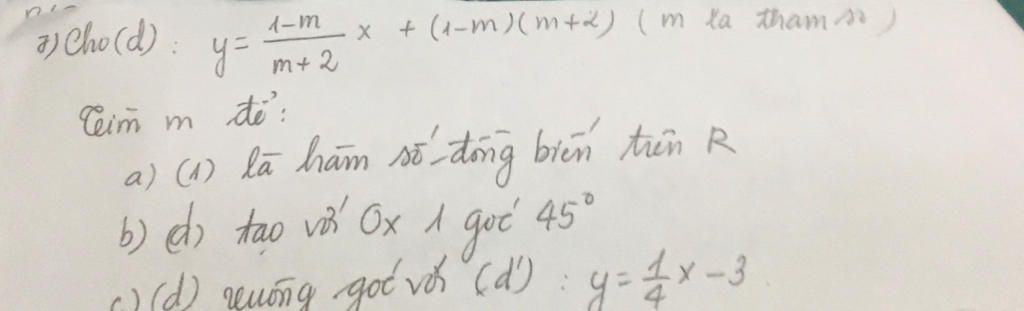 7) Cho (d) : y = \frac{1-m}{m+2} x + (1-m)(m+2) ( m là tham số )
Tìm m để :
a) (1) là hàm số đồng biến trên R
b) (d) tạo với Ox 1 góc 45°
c) (d) vuông góc với (d') : y = \frac{1}{4} x - 3